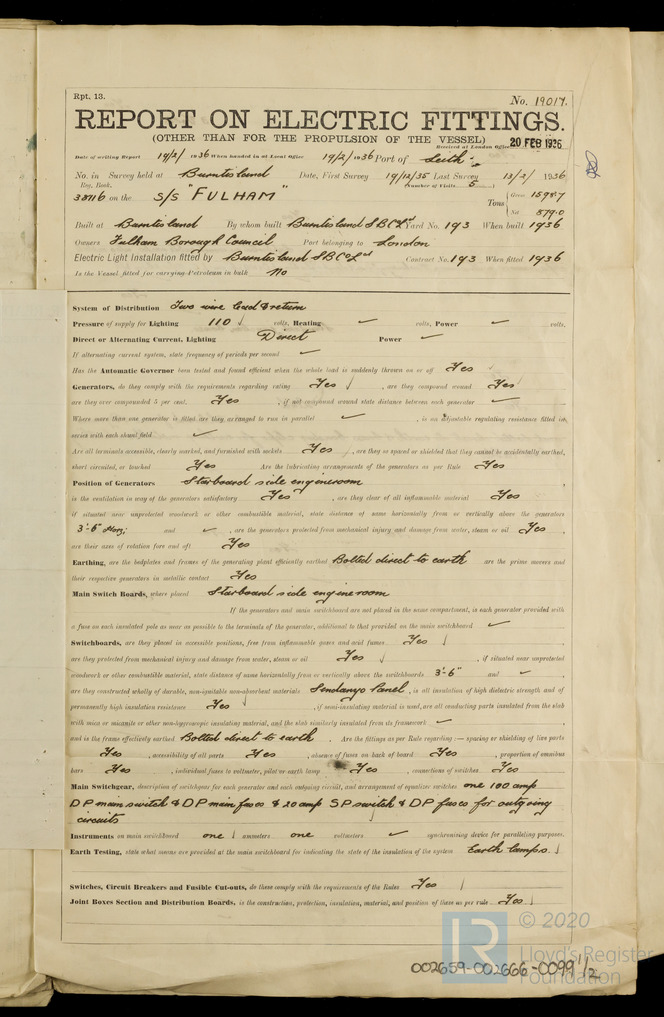 Rpt. 13.
No. 19017.
REPORT ON ELECTRIC FITTINGS.
(OTHER THAN FOR THE PROPULSION OF THE VESSEL)
Received at London Office 20 FEB 1936
Date of writing Report 19/2/1936 When handed in at Local Office 19/2/1936 Port of Leith
No. in Survey held at Burntisland Date, First Survey 19/12/35 Last Survey 13/2/1936
Reg. Book. (Number of Visits 5)
38716 on the S/S "FULHAM" Tons Gross 1598.7
Net 879.0
Built at Burntisland By whom built Burntisland S B Co Ld Yard No. 193 When built 1936
Owners Fulham Borough Council Port belonging to London
Electric Light Installation fitted by Burntisland S B Co Ld Contract No. 193 When fitted 1936
Is the Vessel fitted for carrying Petroleum in bulk No
System of Distribution Two wire lead & return
Pressure of supply for Lighting 110 volts, Heating volts, Power volts.
Direct or Alternating Current, Lighting Direct Power
If alternating current system, state frequency of periods per second
Has the Automatic Governor been tested and found efficient when the whole load is suddenly thrown on or off Yes
Generators, do they comply with the requirements regarding rating Yes, are they compound wound Yes
are they over compounded 5 per cent. Yes, if not compound wound state distance between each generator
Where more than one generator is fitted are they arranged to run in parallel, is an adjustable regulating resistance fitted in
series with each shunt field
Are all terminals accessible, clearly marked, and furnished with sockets Yes, are they so spaced or shielded that they cannot be accidentally earthed,
short circuited, or touched Yes Are the lubricating arrangements of the generators as per Rule Yes
Position of Generators Starboard side engineroom
is the ventilation in way of the generators satisfactory Yes, are they clear of all inflammable material Yes
if situated near unprotected woodwork or other combustible material, state distance of same horizontally from or vertically above the generators
3'-6" Horz; and, are the generators protected from mechanical injury and damage from water, steam or oil Yes,
are their axes of rotation fore and aft Yes
Earthing, are the bedplates and frames of the generating plant efficiently earthed Bolted direct to earth are the prime movers and
their respective generators in metallic contact Yes
Main Switch Boards, where placed Starboard side engineroom
If the generators and main switchboard are not placed in the same compartment, is each generator provided with
a fuse on each insulated pole as near as possible to the terminals of the generator, additional to that provided on the main switchboard
Switchboards, are they placed in accessible positions, free from inflammable gases and acid fumes Yes,
are they protected from mechanical injury and damage from water, steam or oil Yes, if situated near unprotected
woodwork or other combustible material, state distance of same horizontally from or vertically above the switchboards 3'-6" and,
are they constructed wholly of durable, non-ignitable non-absorbent materials Sindanyo Panel, is all insulation of high dielectric strength and of
permanently high insulation resistance Yes, if semi-insulating material is used, are all conducting parts insulated from the slab
with mica or micanite or other non-hygroscopic insulating material, and the slab similarly insulated from its framework,
and is the frame effectively earthed Bolted direct to earth. Are the fittings as per Rule regarding:— spacing or shielding of live parts
Yes, accessibility of all parts Yes, absence of fuses on back of board Yes, proportion of omnibus
bars Yes, individual fuses to voltmeter, pilot or earth lamp Yes, connections of switches Yes
Main Switchgear, description of switchgear for each generator and each outgoing circuit, and arrangement of equalizer switches one 100 amp
D P main switch & D P main fuses & 20 amp S P switch & D P fuses for outgoing
circuits
Instruments on main switchboard one ammeters one voltmeters synchronising device for paralleling purposes.
Earth Testing, state what means are provided at the main switchboard for indicating the state of the insulation of the system Earth lamps.
Switches, Circuit Breakers and Fusible Cut-outs, do these comply with the requirements of the Rules Yes
Joint Boxes Section and Distribution Boards, is the construction, protection, insulation, material, and position of these as per rule Yes
LR
© 2020
Lloyd's Register
Foundation
002659-002666-0099 1/2